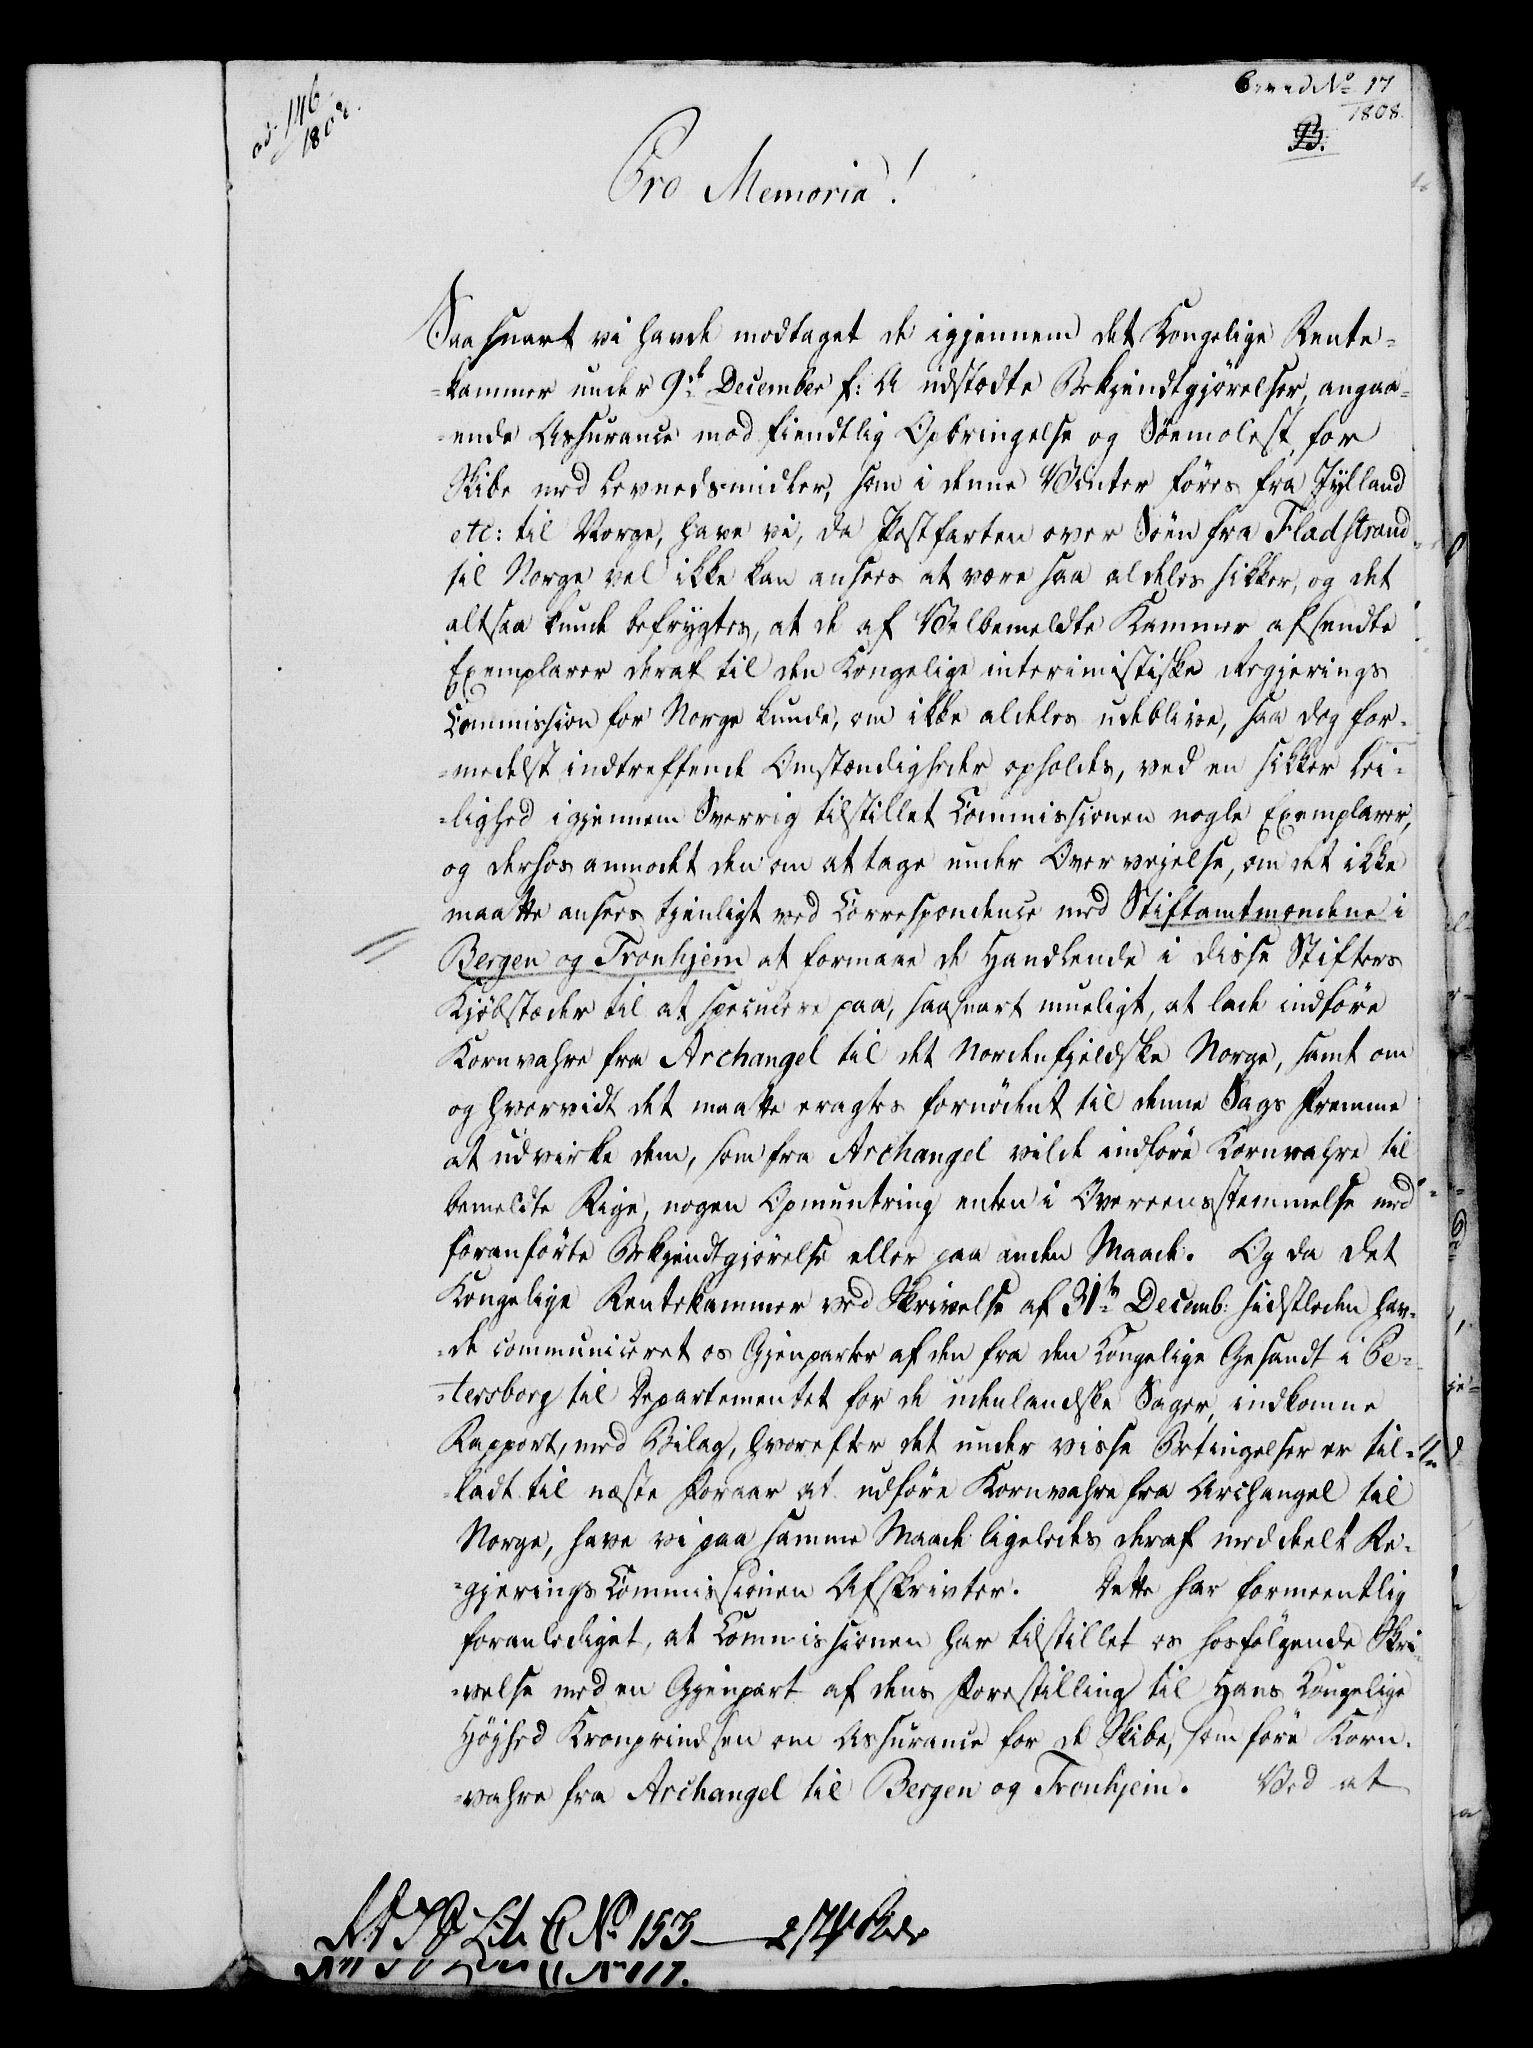 ad. 146
1808.
No 17
1808.
B.
Pro Memoria!
Saasnart vi havde modtaget de igjennem det Kongelige Rente-
-kammer under 9de December f: A udstædte Bekjendtgjörelser, angaa-
-ende Assurance mod fiendtlig Opbringelse og Söemolest, for
Skibe med Levnedsmidler, som i denne Vinter föres fra Jylland
etc: til Norge, have vi, da Postfarten over Söen fra Fladstrand
til Norge vel ikke kan ansees at være saa aldeles sikker, og det
altsaa kunde befrygtes, at de af Velbemeldte Kammer afsendte
Exemplarer deraf til den Kongelige interimistiske Regjerings
Commission for Norge kunde, om ikke aldeles udeblive, saa dog for-
-medelst indtreffende Omstændigheder opholdes, ved en sikker Lei-
-lighed igjennem Sverrig tilstillet Commissionen nogle Exemplarer,
og derhos anmodet den om at tage under Overvejelse, om det ikke
maatte ansees tjenligt ved Correspondence med Stiftamtmændene i
Bergen og Tronhjem at formaae de Handlende i disse Stifters
Kjöbstæder til at speculere paa, saasnart mueligt, at lade indföre
Kornvahre fra Archangel til det Nordenfjeldske Norge, samt om
og hvorvidt det maatte eragtes fornödent til denne Sags Fremme
at udvirke dem, som fra Archangel vilde indföre Kornvahre til
bemeldte Rige, nogen Opmuntring enten i Overeensstemmelse med
foranförte Bekjendtgjörelse eller paa anden Maade. Og da det
Kongelige Rentekammer ved Skrivelse af 31te Decemb: sidstleden hav-
-de communiceret os Gjenparter af den fra den Kongelige Gesandt i Pe-
-tersborg til Departementet for de udenlandske Sager, indkomne
Rapport, med Bilag, hvorefter det under visse Betingelser er til-
-ladt til næste Foraar at udföre Kornvahre fra Archangel til
Norge, have vi paa samme Maade ligeledes deraf meddeelt Re-
-gjerings Commissionen Afskrivter. Dette har formeentlig
foranlediget, at Commissionen har tilstillet os hosfölgende Skri-
-velse med en Gjenpart af dens Forestilling til Hans Kongelige
Höjhed Kronprindsen om Assurance for de Skibe, som före Korn-
-vahre fra Archangel til Bergen og Tronhjem. Ved at
Litr C No 153
No 117.